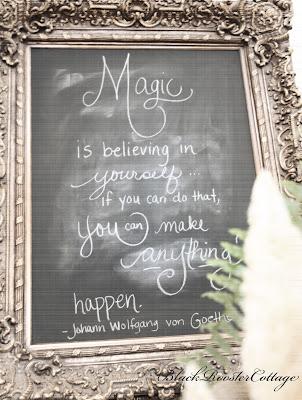 Magic
is believing in
yourself...
if you can do that,
you can make
anything!
happen.
- Johann Wolfgang von Goethe
BlackRoosterCottage